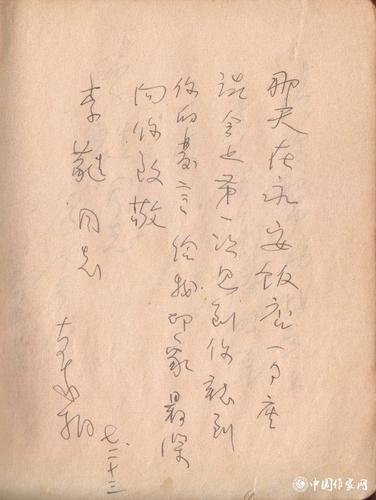 那天在永安饭店一个座
谈会上第一次见到你听到
你的发言给我印象最深
向你致敬
李蕤同志
七.二十三
中国作家网